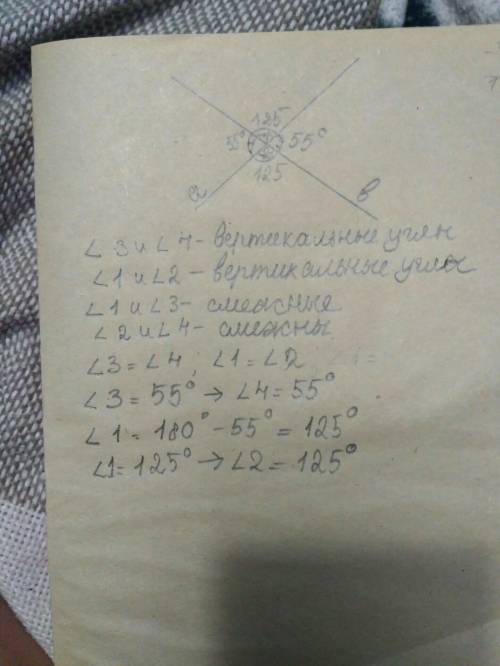 125
55° 55°
125
a в
∠3 и ∠4 - вертикальные углы
∠1 и ∠2 - вертикальные углы
∠1 и ∠3 - смежные
∠2 и ∠4 - смежны
∠3 = ∠4; ∠1 = ∠2
∠3 = 55° → ∠4 = 55°
∠1 = 180° - 55° = 125°
∠1 = 125° → ∠2 = 125°